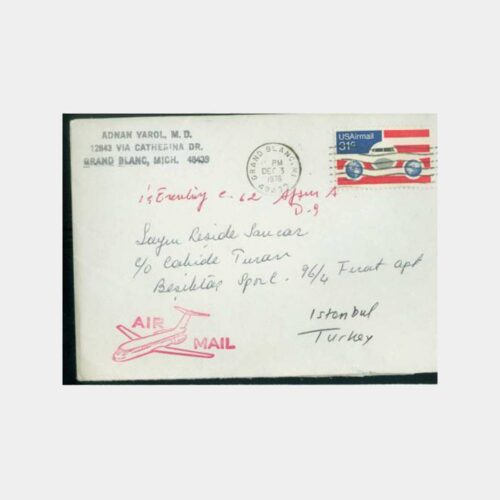 ADNAN YAROL, M. D.
12843 VIA CATHERINA DR.
GRAND BLANC, MICH. 48439
GRAND BLANC, MI
PM
DEC 3
1976
48439
USAirmail
31c
c. 62
D-9
Sayın Reside Sancar
c/o Cahide Turan
Beşiktaş Spor 96/4 Fırat apt
Istanbul
Turkey
AIR
MAIL